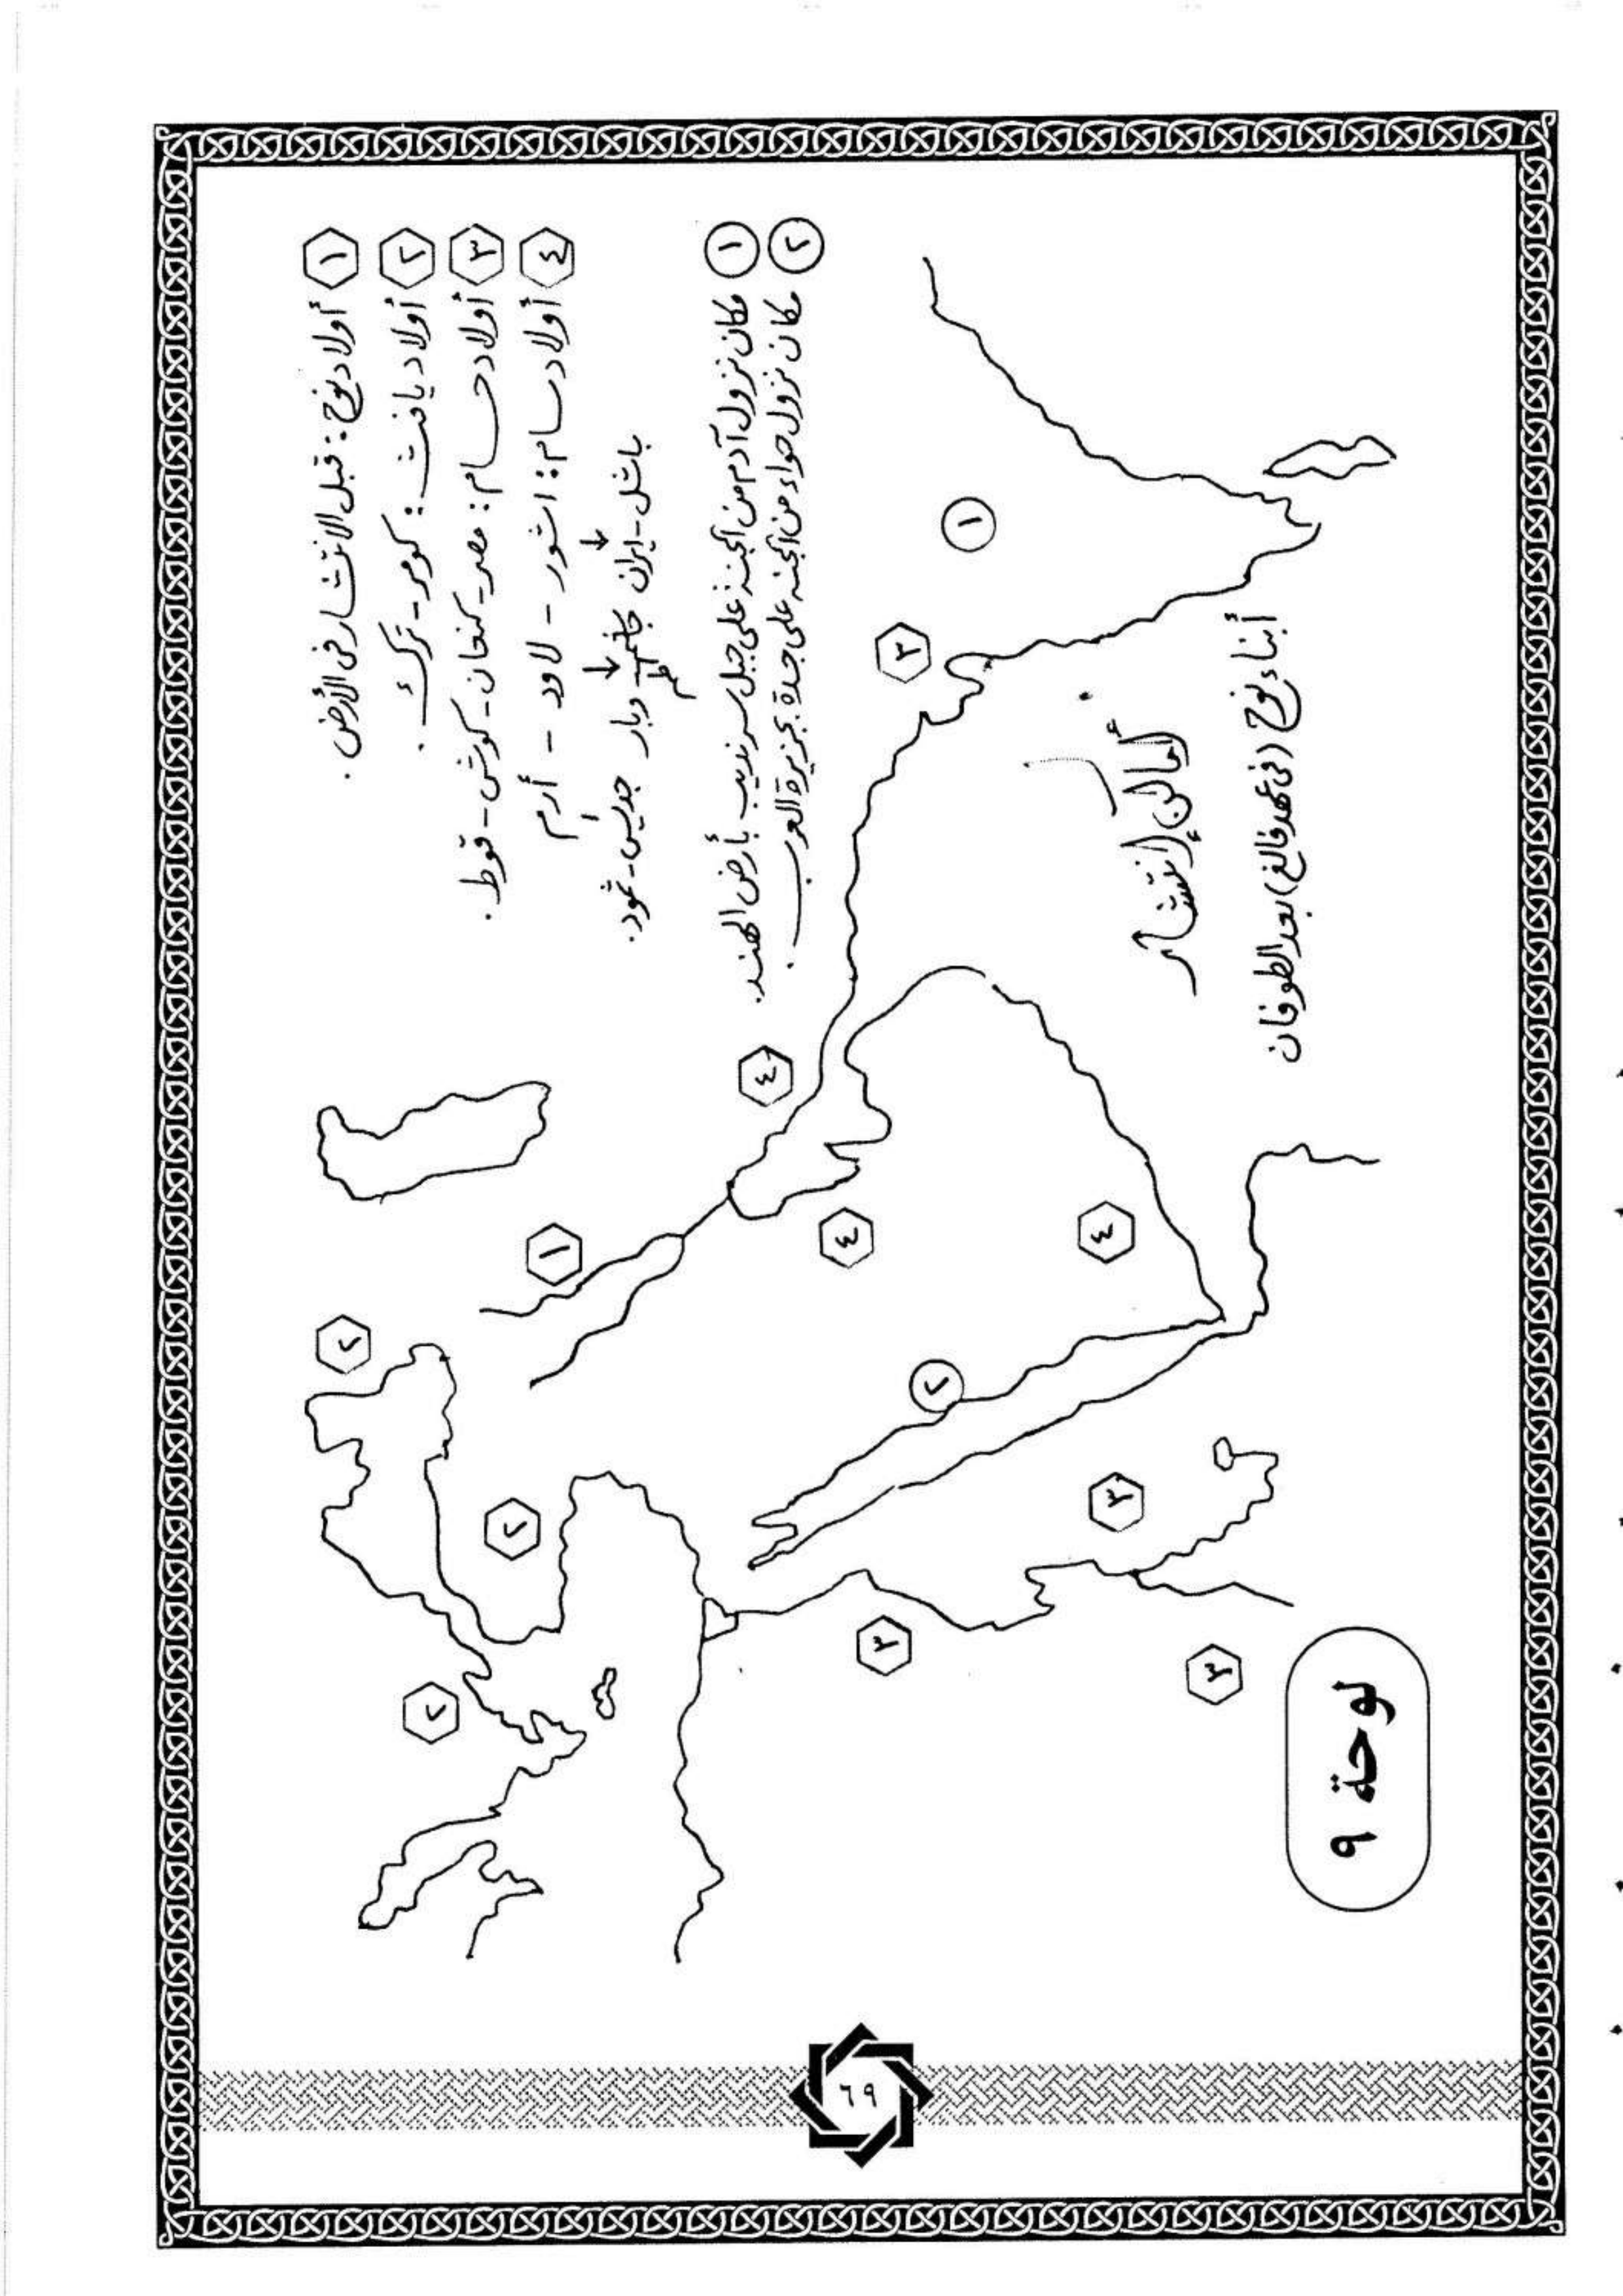 ١ أولاد نوح : قبل الانتشار في الأرض .
٢ أولاد يافث : كومر - ترك .
٣ أولاد حام : مصر - كنعان - كوش - قوط .
٤ أولاد سام : اشور - لاود - أرم
باسل - إيران وبار جديس - ثمود .
١ مكان نزول آدم من الجنة على جبل سرنديب بأرض الهند .
٢ مكان نزول حواء من الجنه على جدة بجزيرة العرب .
١
٣
٤
١
٤
٤
٢
٢
٢
٣
٢
٣
٣
أماكن إنتشار
أبناء نوح (في عهد فالغ) بعد الطوفان
لوحة ٩
٦٩